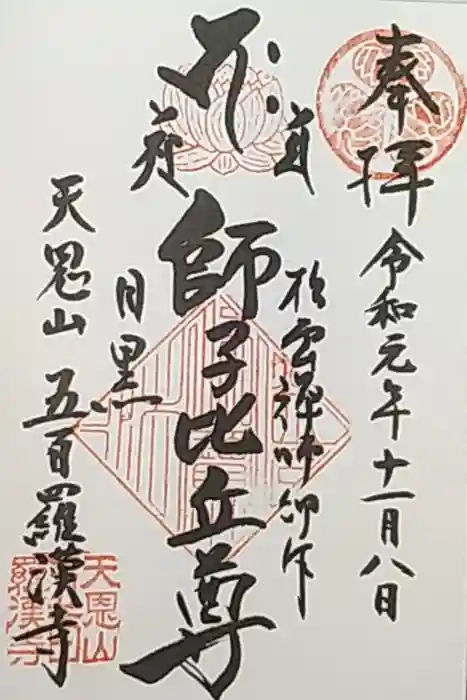 奉拝
令和元年十一月八日
松雲禅師御作
師子比丘尊
目黒
天恩山
五百羅漢寺
天恩山
羅漢寺